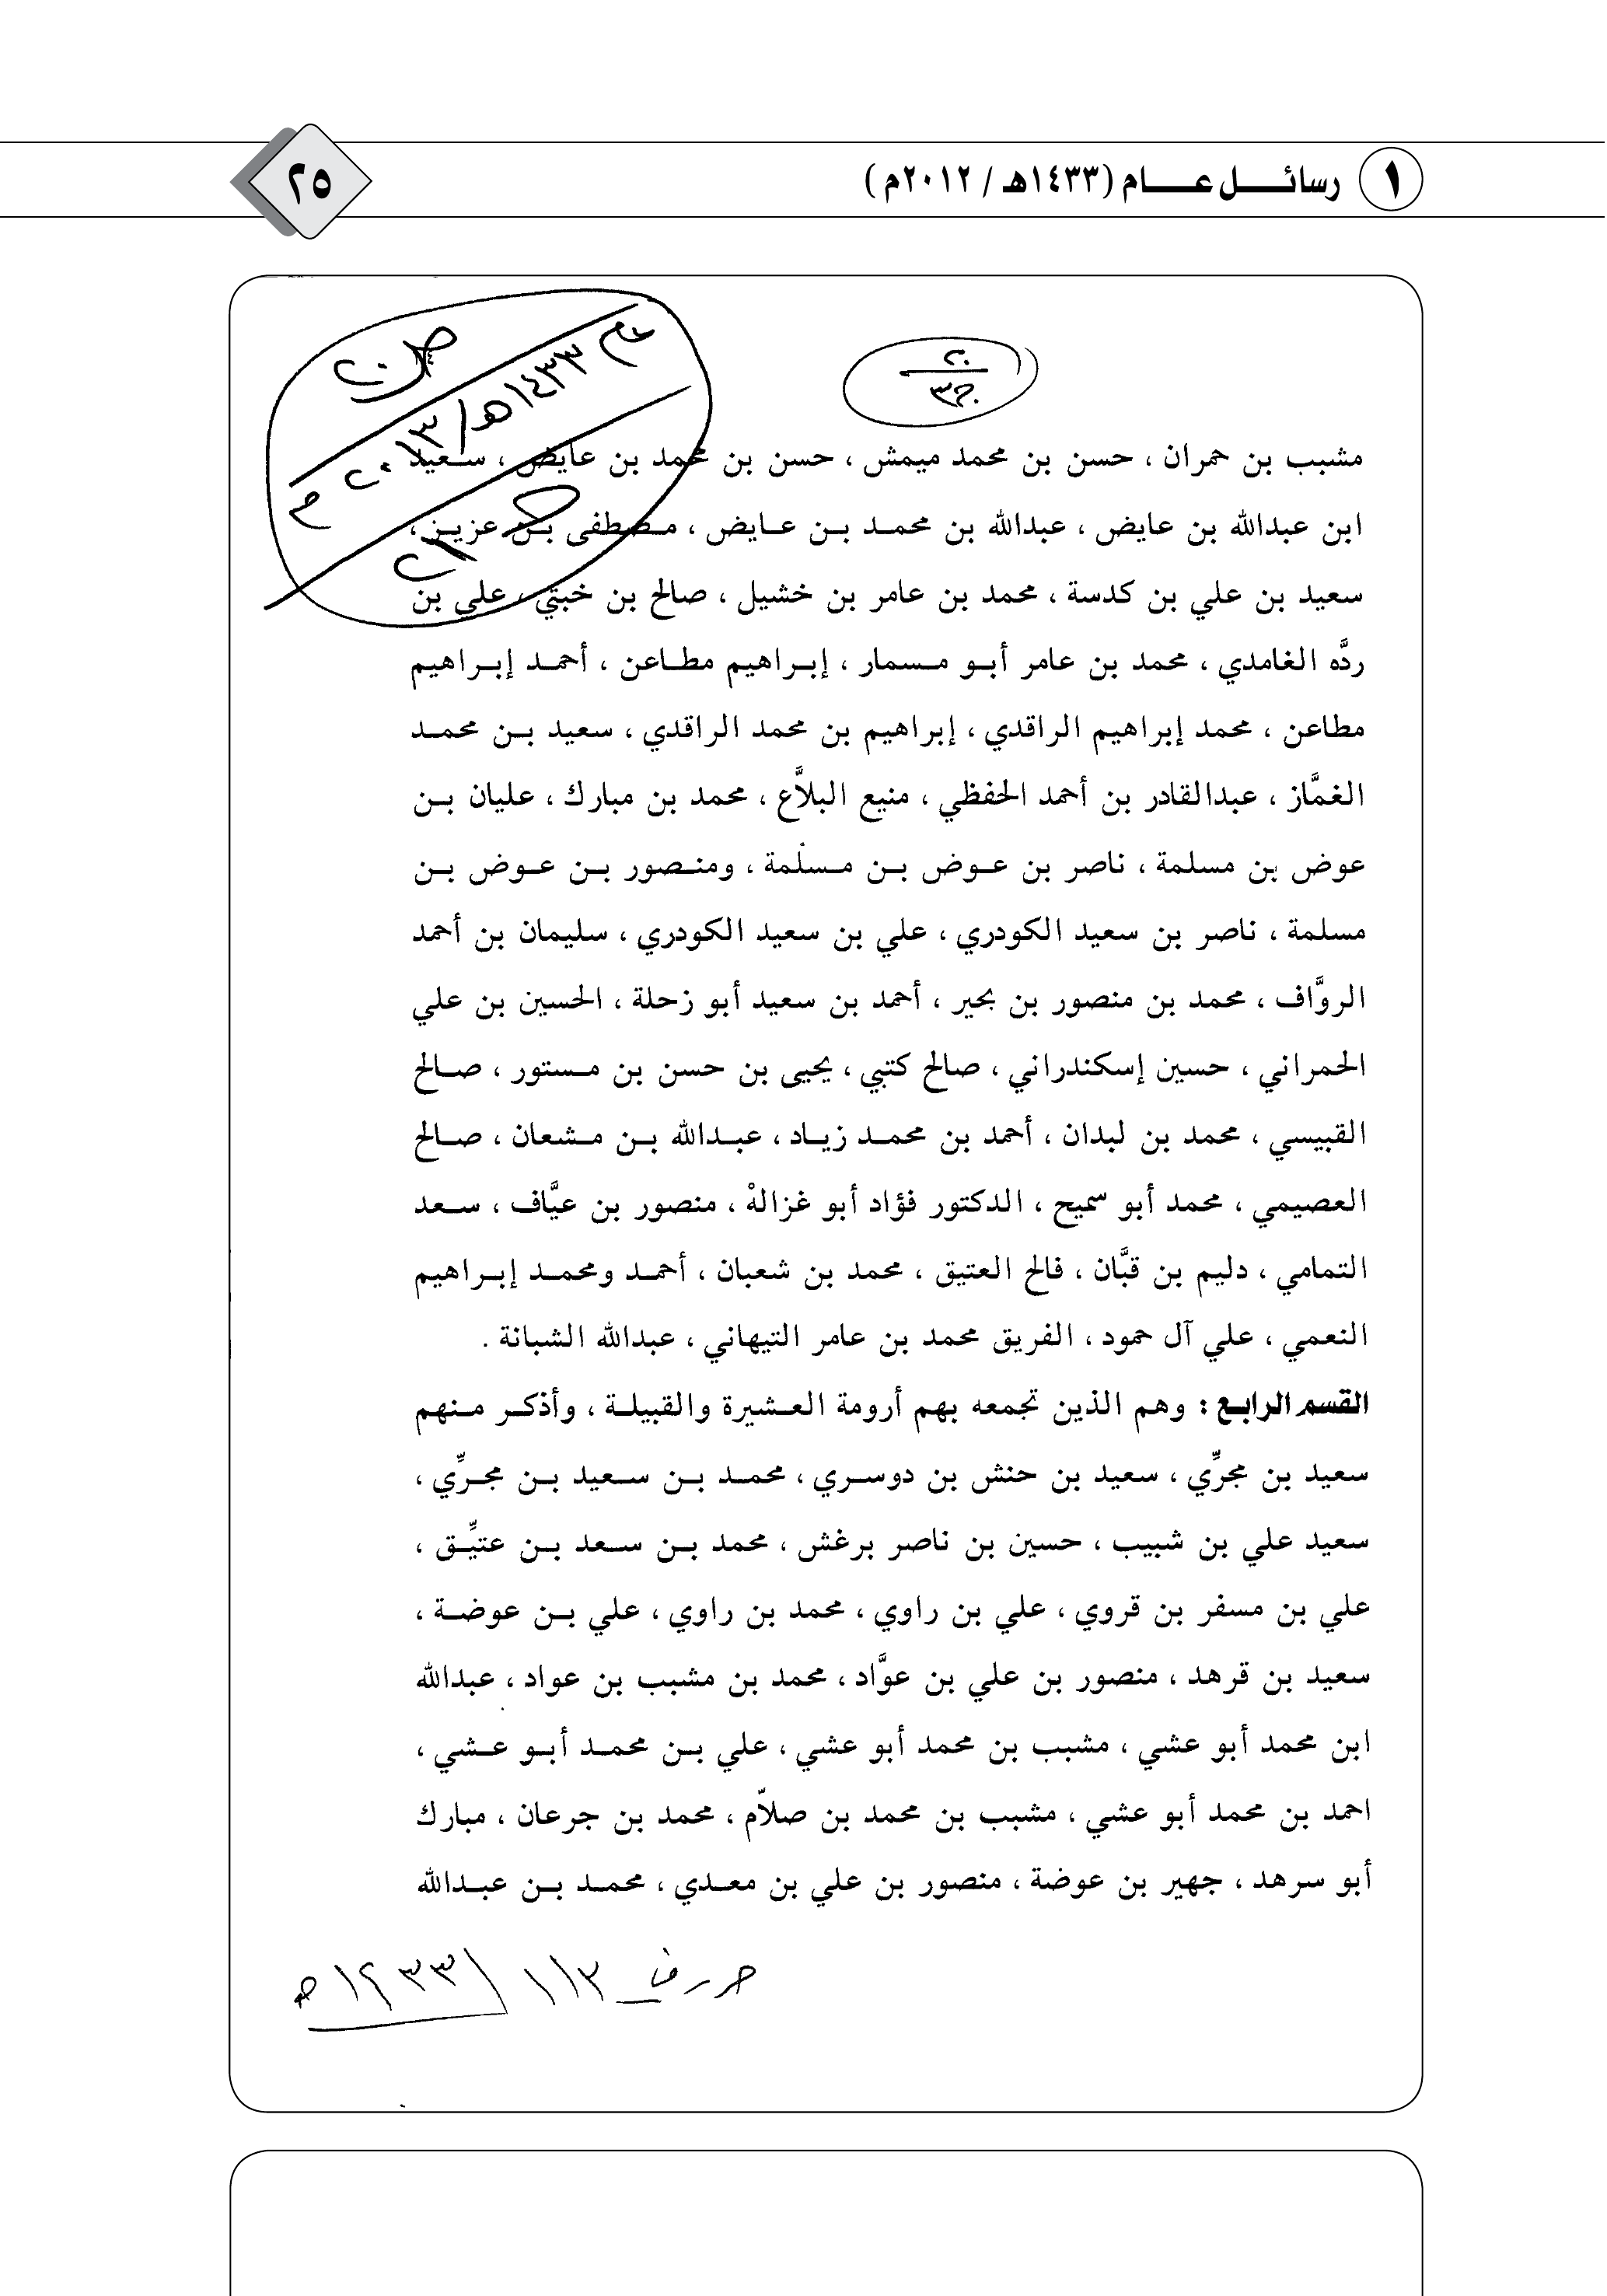 ١ رسائـــل عـــــام (١٤٣٣هـ / ٢٠١٢م )
٢٥
عام ١٤٣٣هـ/ ٢٠١٣م
٢٠
ج٣
مشبب بن حمران ، حسن بن محمد ميمش ، حسن بن محمد بن عايض ، سـعيد
ابن عبدالله بن عايض ، عبدالله بن محمـد بـن عـايض ، مـصطفى بـن عزيـز ،
سعيد بن علي بن كدسة ، محمد بن عامر بن خشيل ، صالح بن خبتي ، علي بن
ردَّه الغامدي ، محمد بن عامر أبـو مـسمار ، إبـراهيم مطـاعن ، أحمـد إبـراهيم
مطاعن ، محمد إبراهيم الراقدي ، إبراهيم بن محمد الراقدي ، سعيد بـن محمـد
الغمَّاز ، عبدالقادر بن أحمد الحفظي ، منيع البلاَّع ، محمد بن مبارك ، عليان بـن
عوض بن مسلمة ، ناصر بن عـوض بـن مـسلمة ، ومنـصور بـن عـوض بـن
مسلمة ، ناصر بن سعيد الكودري ، علي بن سعيد الكودري ، سليمان بن أحمد
الروَّاف ، محمد بن منصور بن بحير ، أحمد بن سعيد أبو زحلة ، الحسين بن علي
الحمراني ، حسين إسكندراني ، صالح كتبي ، يحيى بن حسن بن مـستور ، صـالح
القبيسي ، محمد بن لبدان ، أحمد بن محمـد زيـاد ، عبـدالله بـن مـشعان ، صـالح
العصيمي ، محمد أبو سميح ، الدكتور فؤاد أبو غزالهْ ، منصور بن عيَّاف ، سـعد
التمامي ، دليم بن قبَّان ، فالح العتيق ، محمد بن شعبان ، أحمـد ومحمـد إبـراهيم
النعمي ، علي آل حمود ، الفريق محمد بن عامر التيهاني ، عبدالله الشبانة .
القسم الرابـع : وهم الذين تجمعه بهم أرومة العـشيرة والقبيلـة ، وأذكـر مـنهم
سعيد بن مجرِّي ، سعيد بن حنش بن دوسـري ، محمـد بـن سـعيد بـن مجـرِّي ،
سعيد علي بن شبيب ، حسين بن ناصر برغش ، محمد بـن سـعد بـن عتيِّـق ،
علي بن مسفر بن قروي ، علي بن راوي ، محمد بن راوي ، علي بـن عوضـة ،
سعيد بن قرهد ، منصور بن علي بن عوَّاد ، محمد بن مشبب بن عواد ، عبدالله
ابن محمد أبو عشي ، مشبب بن محمد أبو عشي ، علي بـن محمـد أبـو عـشي ،
احمد بن محمد أبو عشي ، مشبب بن محمد بن صلاّم ، محمد بن جرعان ، مبارك
أبو سرهد ، جهير بن عوضة ، منصور بن علي بن معـدي ، محمـد بـن عبـدالله